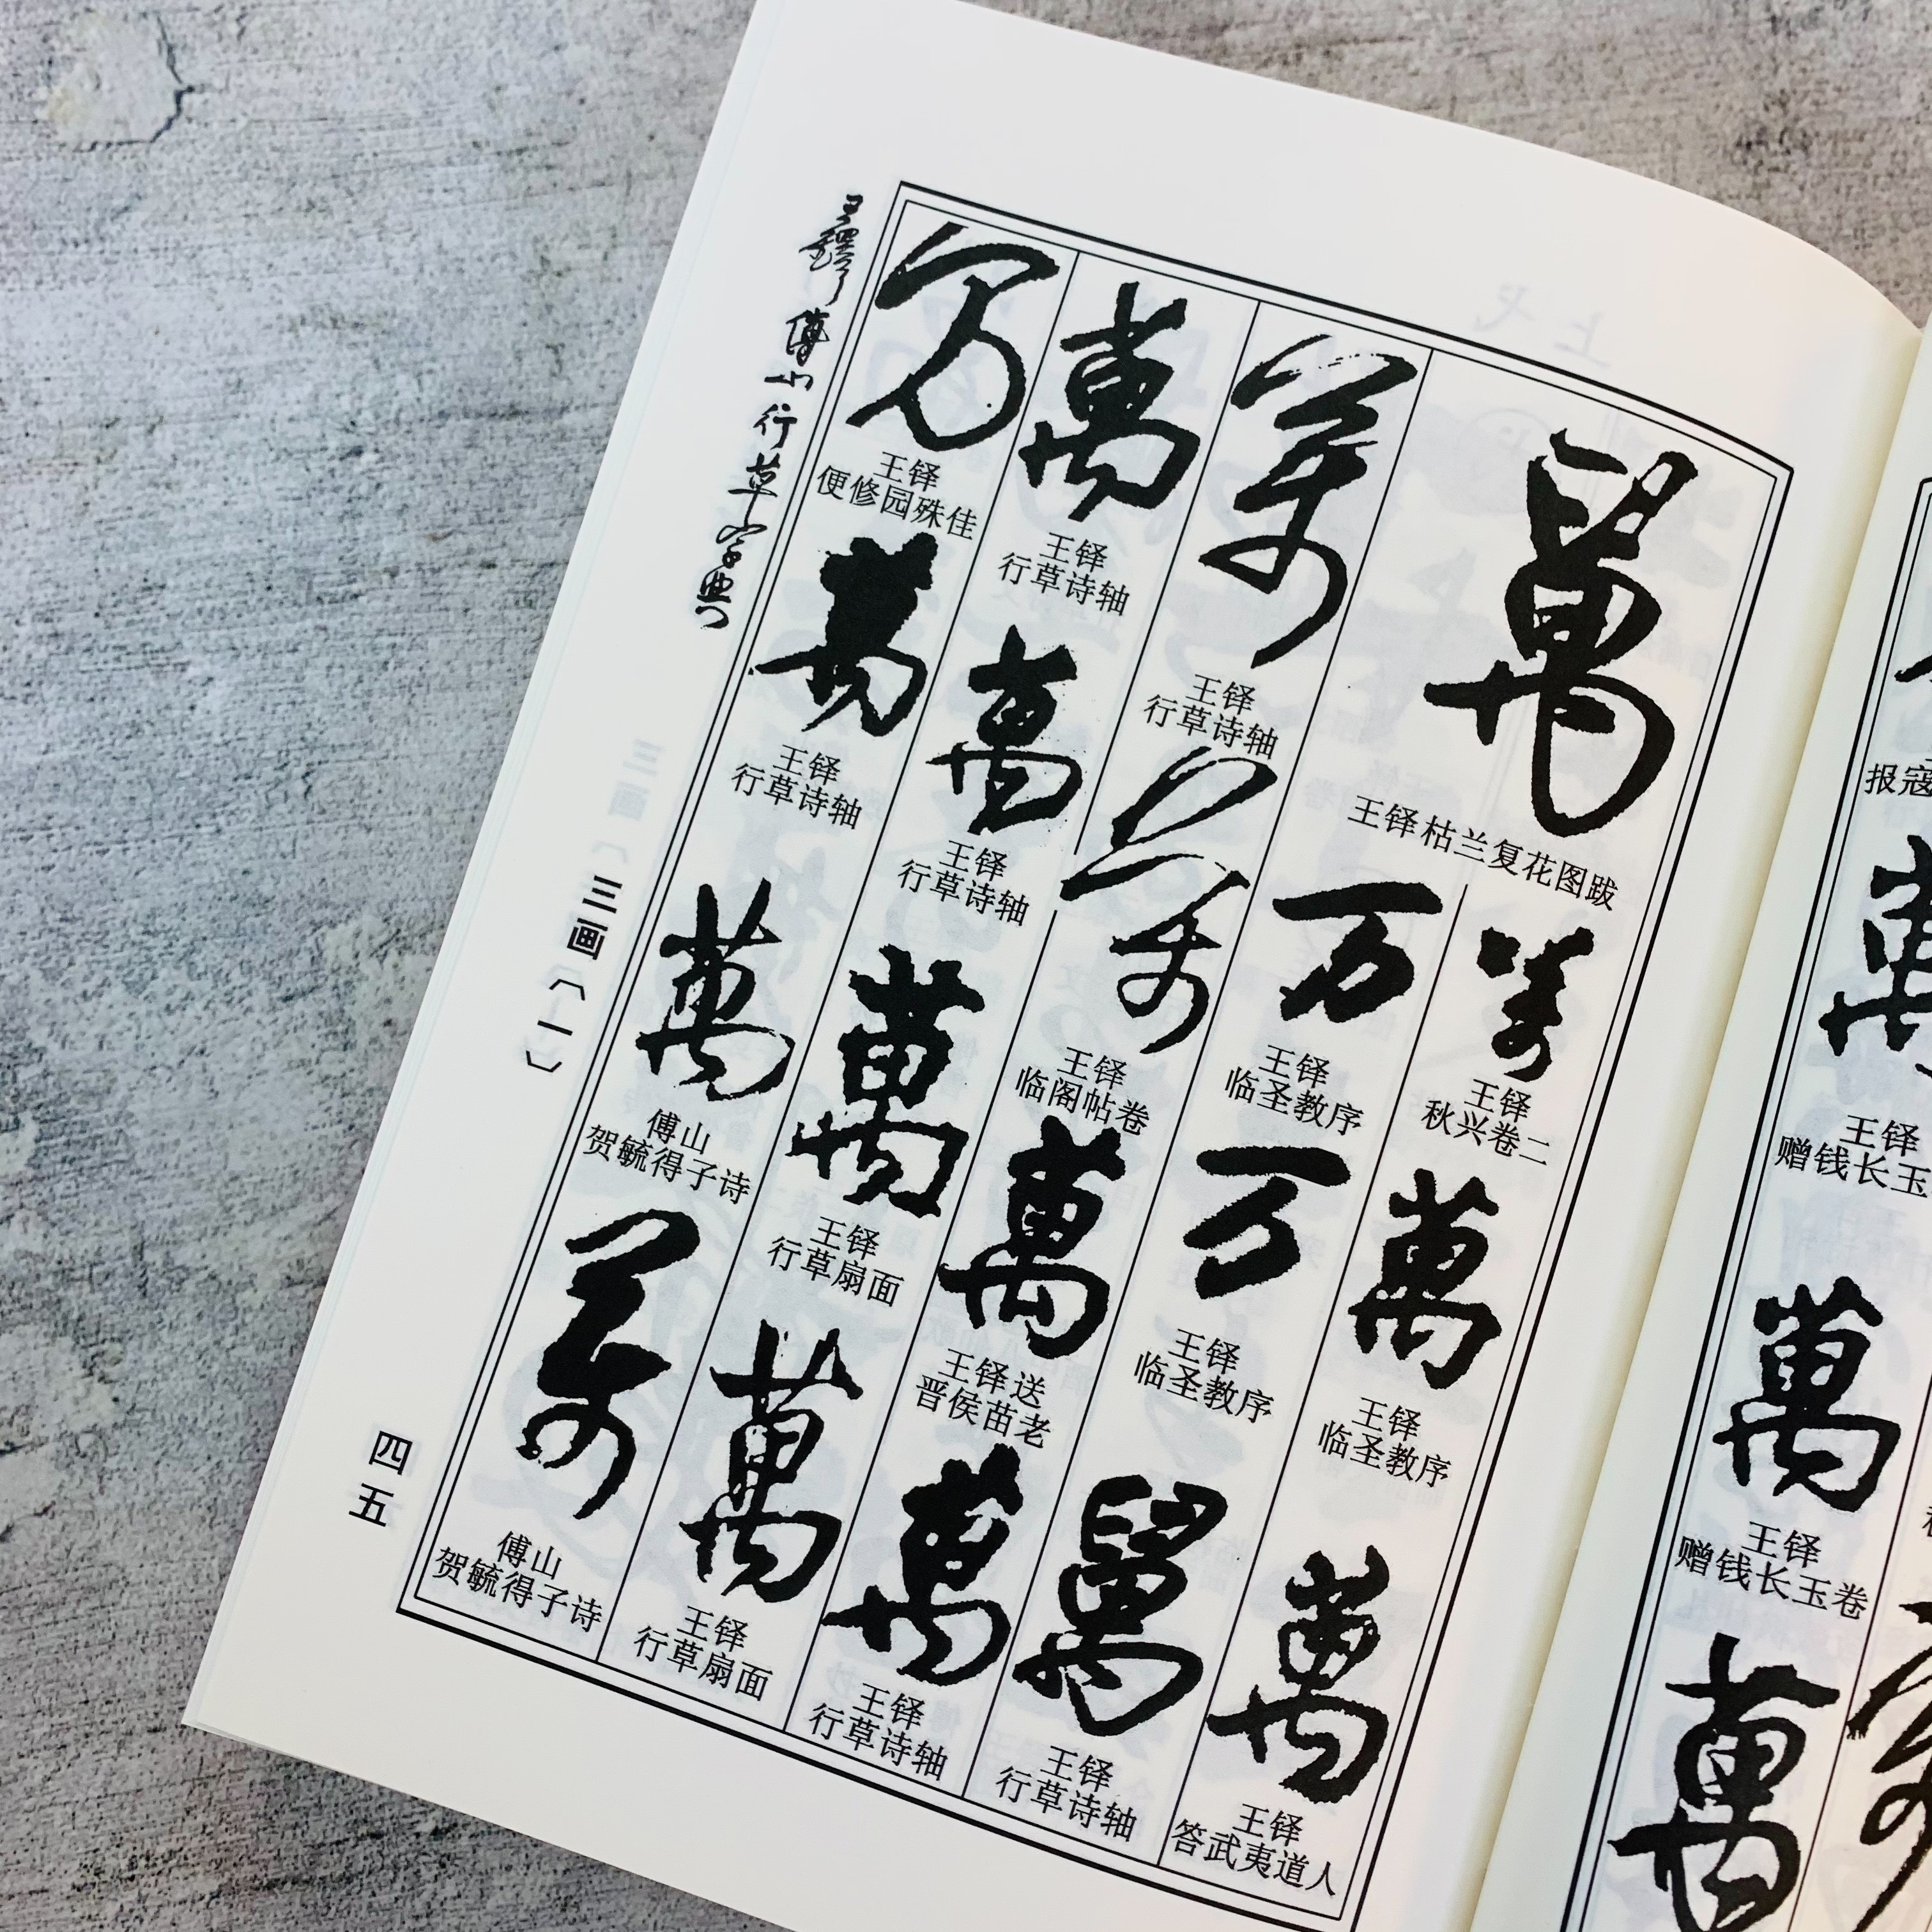 王铎傅山行草字典
三画〔一〕
四五
萬
王铎枯兰复花图跋
萬
王铎
秋兴卷二
萬
王铎
临圣教序
萬
王铎
答武夷道人
万
王铎
临圣教序
万
王铎
临圣教序
萬
王铎
行草诗轴
萬
王铎
行草诗轴
萬
王铎
临阁帖卷
萬
王铎送
晋侯苗老
萬
王铎
行草诗轴
萬
王铎
行草诗轴
萬
王铎
行草诗轴
萬
王铎
行草扇面
萬
王铎
行草扇面
万
王铎
便修园殊佳
萬
王铎
行草诗轴
萬
傅山
贺毓得子诗
萬
傅山
贺毓得子诗
报寇
萬
王铎
赠钱长玉
萬
王铎
赠钱长玉卷
萬